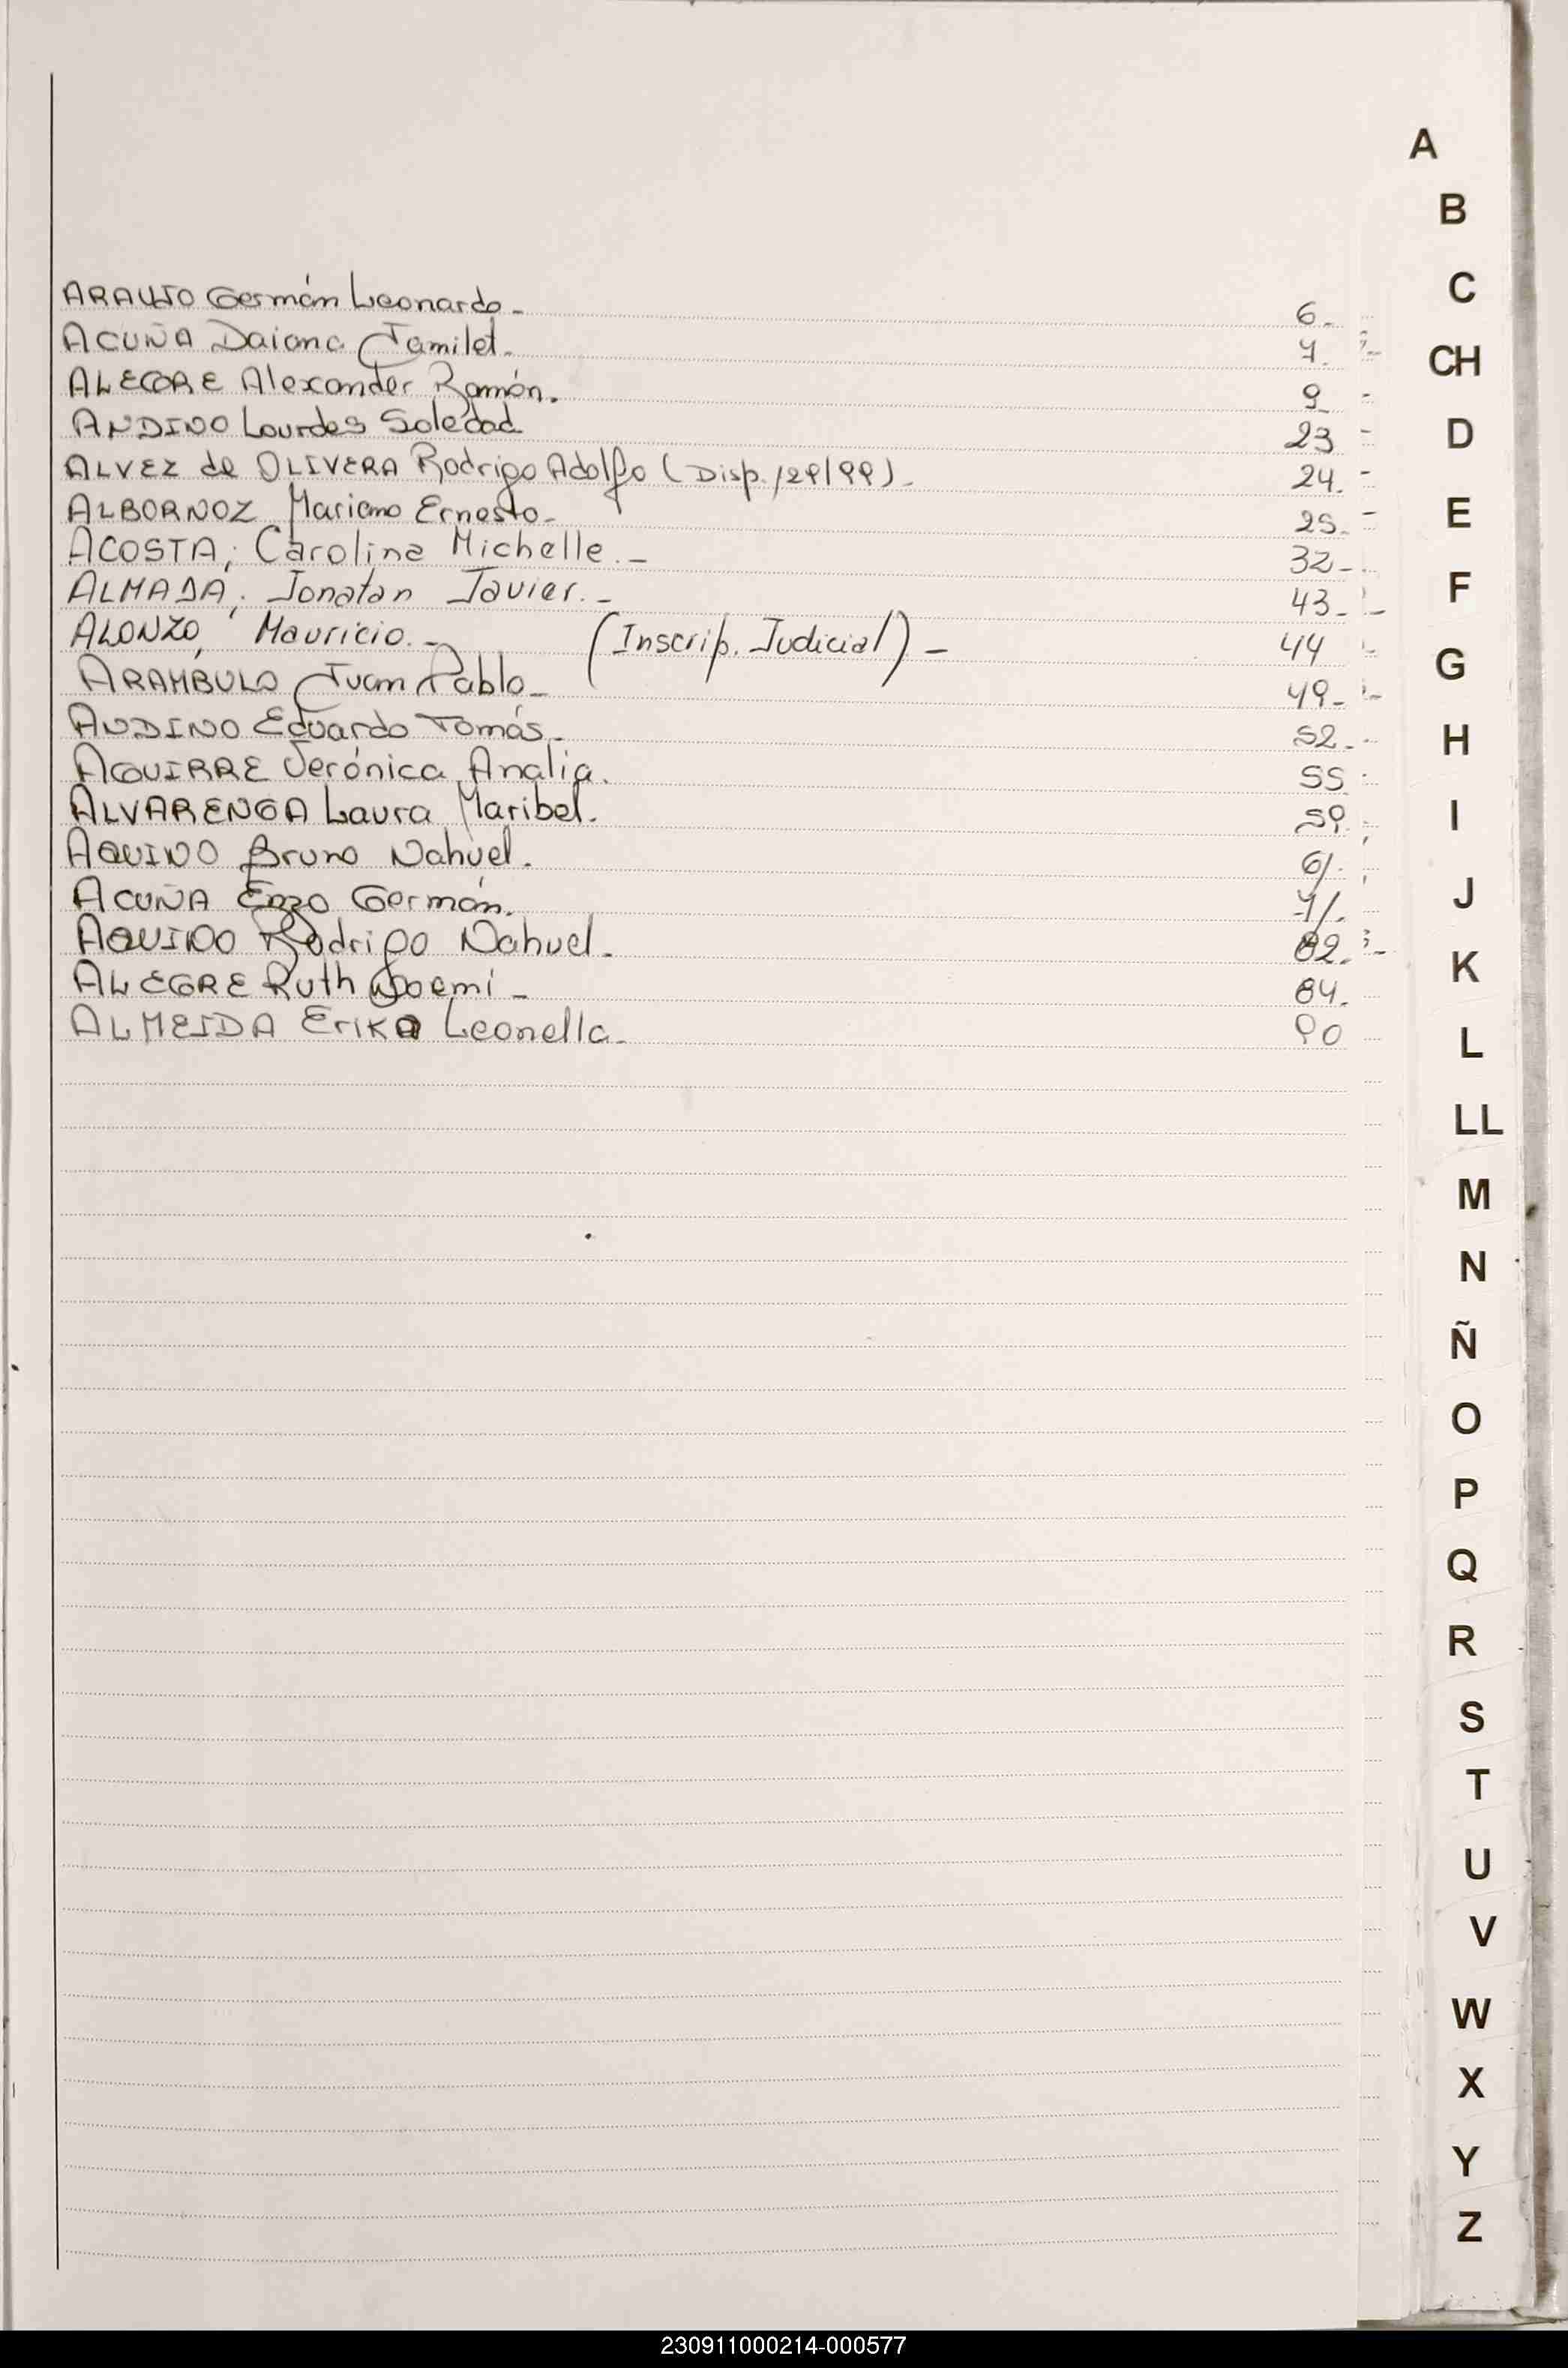 ARAUJO Germán Leonardo - 6.-
ACUÑA Daiana Jamilet. 7.
ALEGRE Alexander Ramón. 9
ANDINO Lourdes Soledad 23
ALVEZ de OLIVERA Rodrigo Adolfo (Disp. 129/99) - 24.
ALBORNOZ Mariano Ernesto - 25.-
ACOSTA, Carolina Michelle. - 32 -
ALMADA, Jonatan Javier. - 43 -
ALONZO, Mauricio. - (Inscrip. Judicial) - 44
ARAMBULO Juan Pablo - 49 -
ANDINO Eduardo Tomás - 52.-
AGUIRRE Verónica Analia. 55
ALVARENGA Laura Maribel. 59.
AQUINO Bruno Nahuel. 61.
ACUÑA Enzo Germán. 71.
AQUINO Rodrigo Nahuel - 82.-
ALEGRE Ruth Noemí - 84.
ALMEIDA Erika Leonella - 90
A
B
C
CH
D
E
F
G
H
I
J
K
L
LL
M
N
Ñ
O
P
Q
R
S
T
U
V
W
X
Y
Z
230911000214-000577